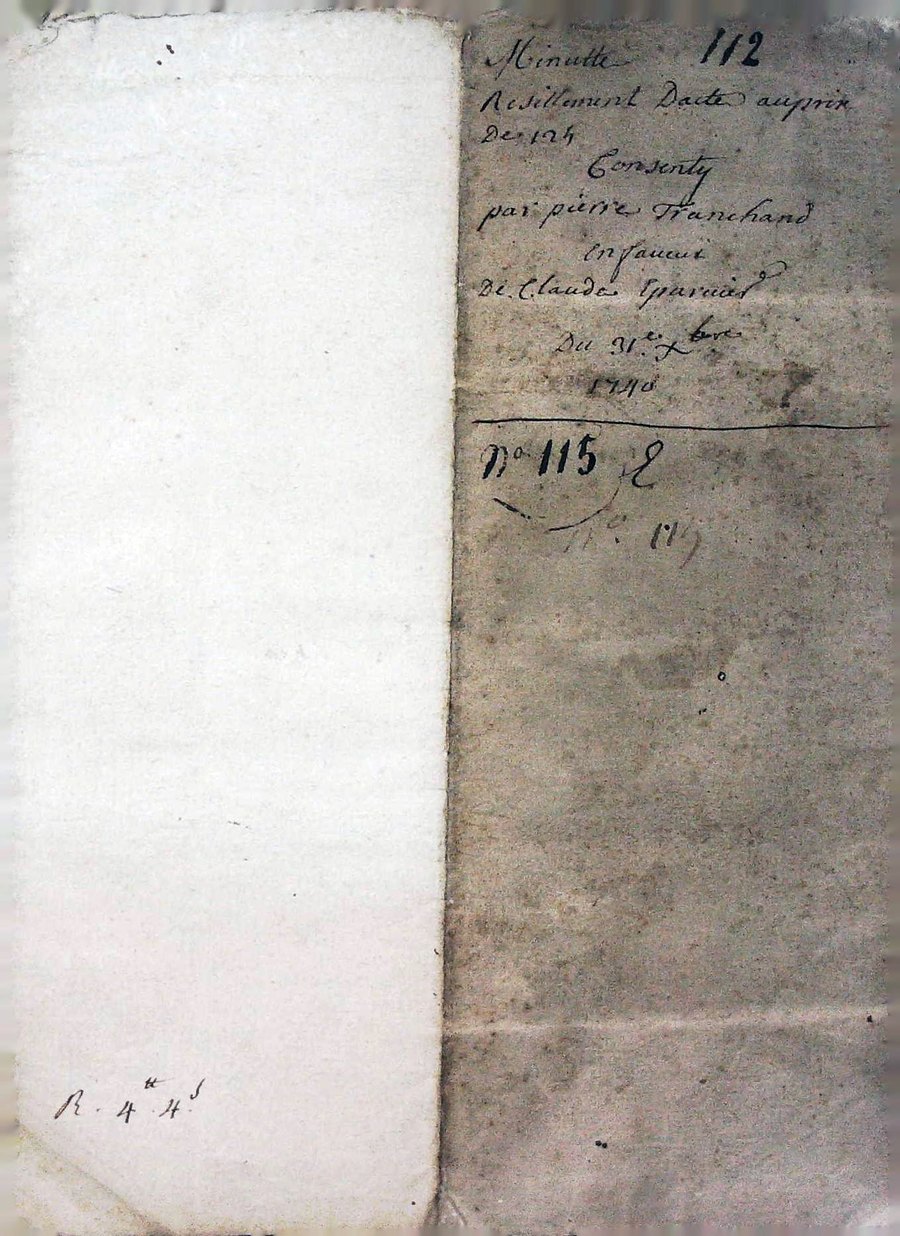 Minutte 112
Resillement Dacte auprix
De 124
Consenty
par pierre Tranchand
en faveur
De Claude Eparvier
Du 31.e Xbre
1740
No 115
No. 114
R. 4tt. 4s